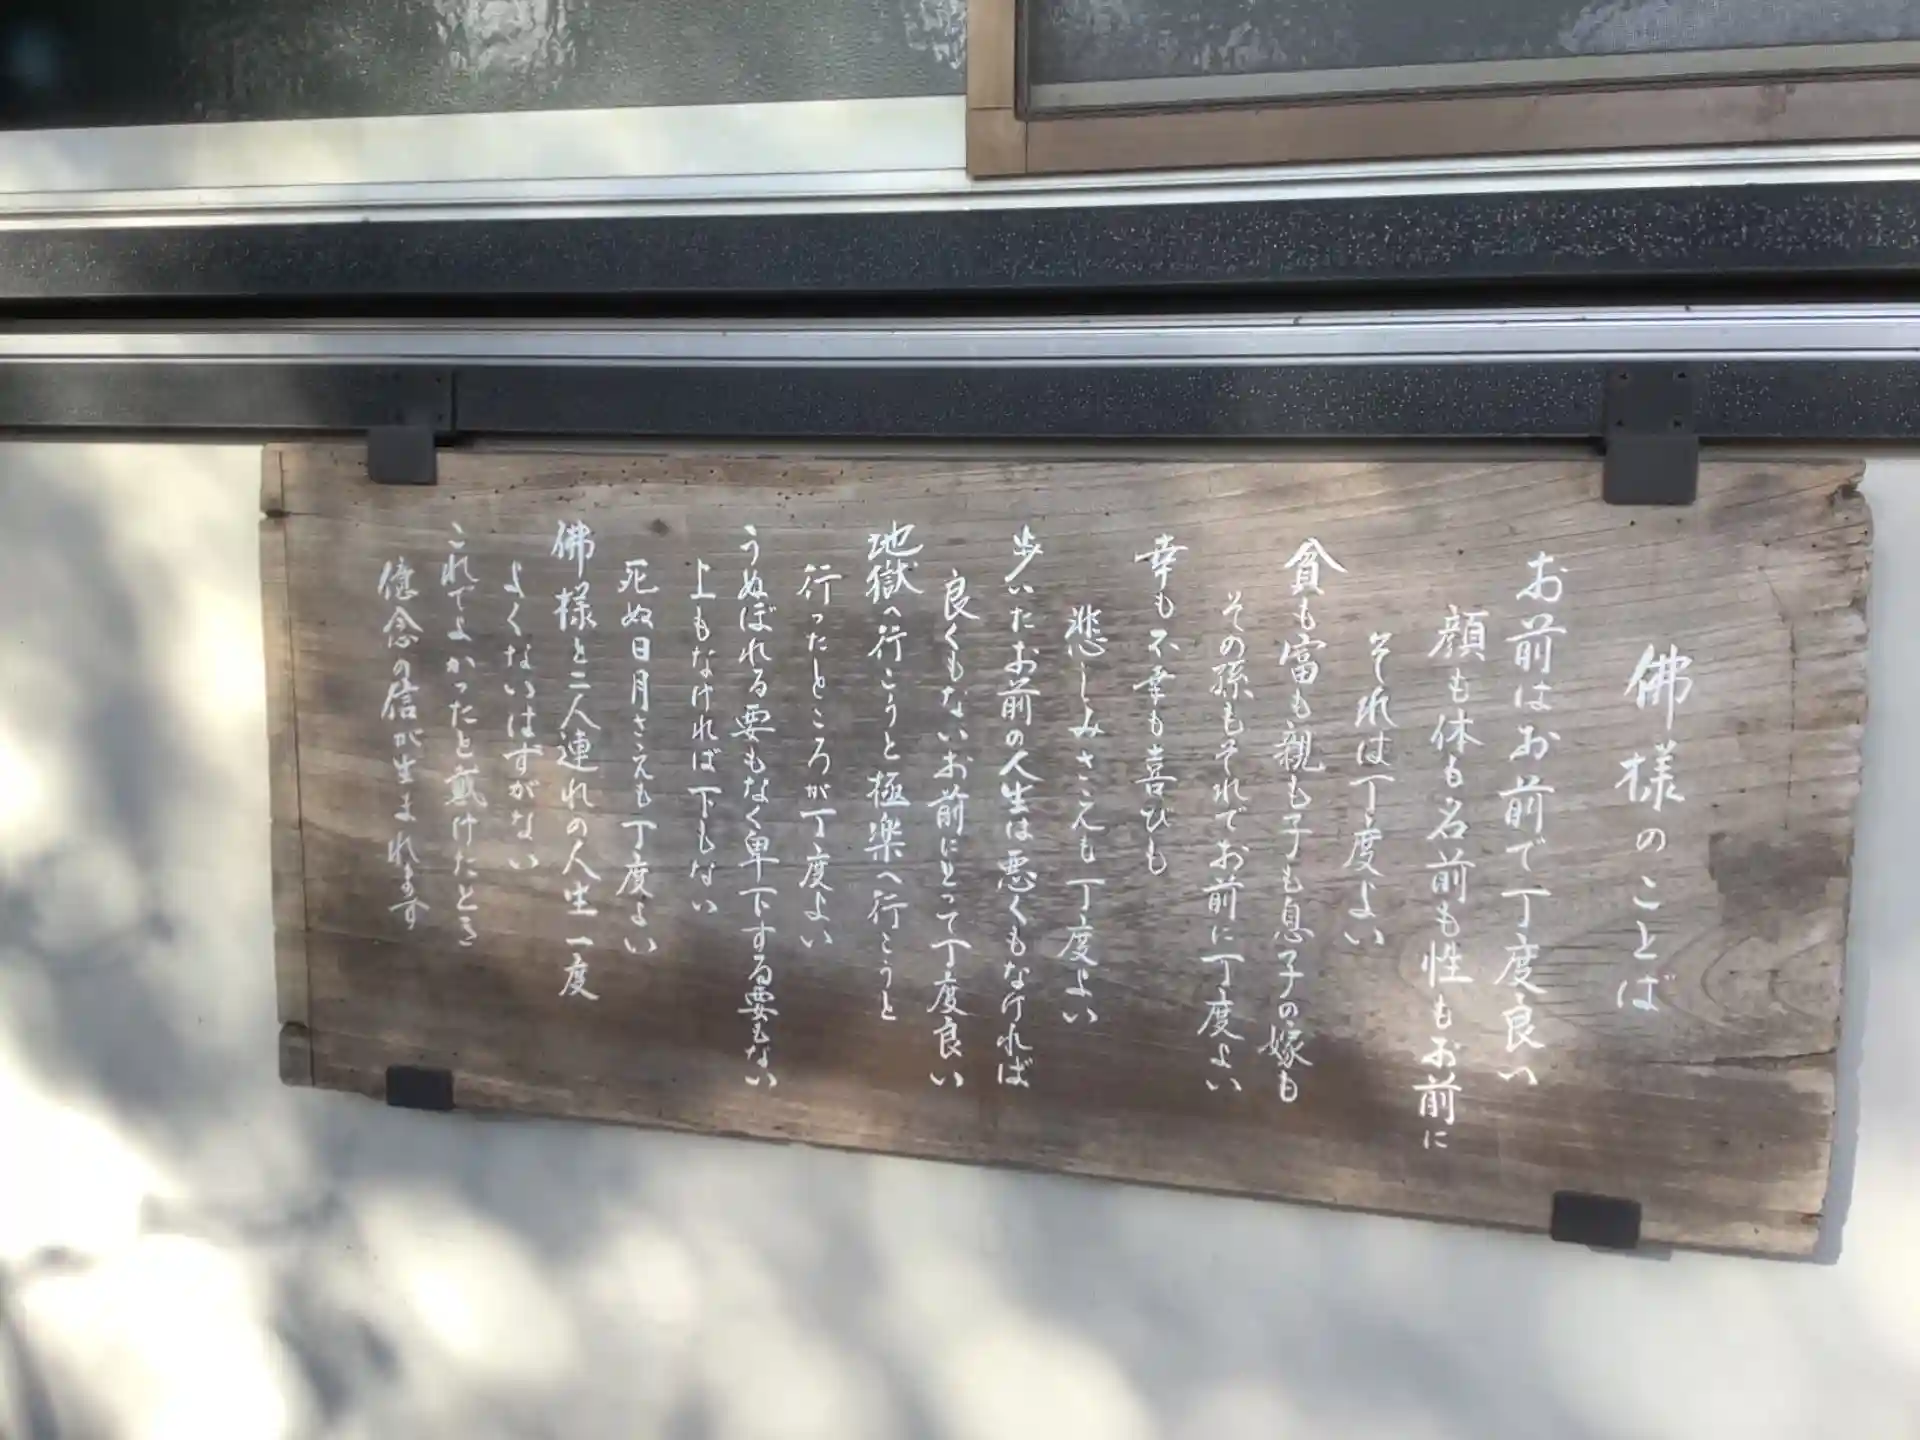 佛様のことば
お前はお前で丁度良い
顔も体も名前も性もお前に
それは丁度よい
貧も富も親も子も息子の嫁も
その孫もそれでお前に丁度よい
幸も不幸も喜びも
悲しみさえも丁度よい
歩いたお前の人生は悪くもなければ
良くもないお前にとって丁度良い
地獄へ行こうと極楽へ行こうと
行ったところが丁度よい
うぬぼれる要もなく卑下する要もない
上もなければ下もない
死ぬ日月さえも丁度よい
佛様と二人連れの人生一度
よくないはずがない
これでよかったと戴けたとき
憶念の信が生まれます